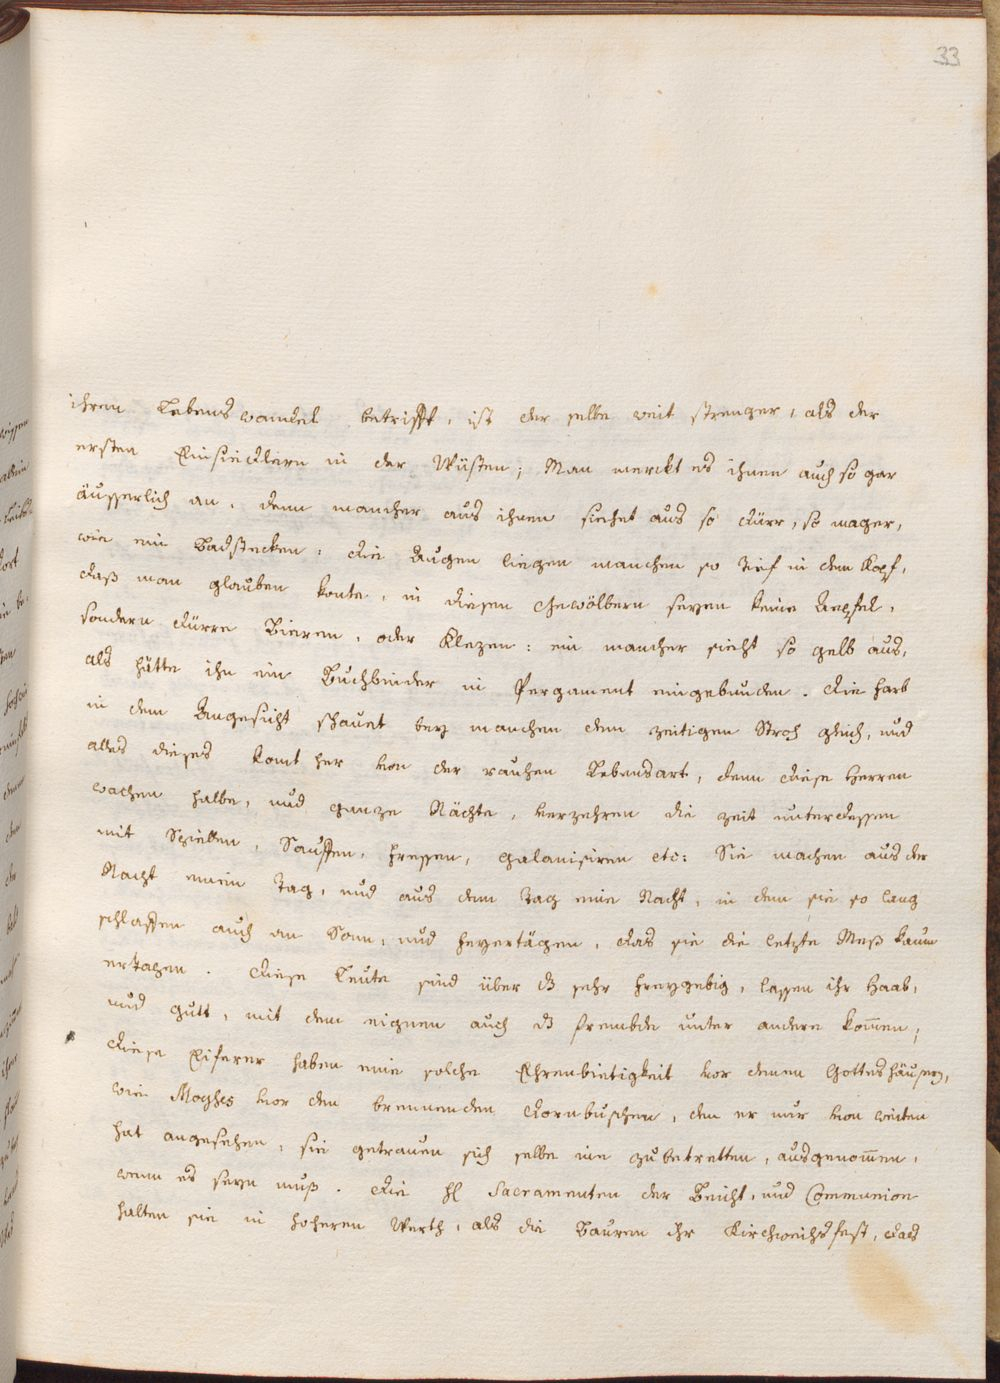 33
ihren Lebenswandel betrifft, ist der selbe weit strenger, als der
ersten Einsiedlern in der Wüsten; Man merckt es ihnen auch so gar
äusserlich an, denn mancher aus ihnen siehet aus so dürr, so mager,
wie ein Badstecken: die Augen liegen manchen so tief in dem Kopf,
daß man glauben konte, in diesen Gewölbern seyen keine Aepfel,
sondern dürre Bieren, oder Klezen: ein mancher sieht so gelb aus,
als hätte ihn ein Buchbinder in Pergament eingebunden. die Farb
in dem Angesicht schauet bey manchen dem zeitigen Stroh gleich, und
alles dieses komt her von der rauhen Lebensart, denn diese Herren
wachen halbe, und ganze Nächte, verzehren die zeit unterdessen
mit Spiellen, Sauffen, fressen, galanisiren etc: Sie machen aus der
Nacht einen Tag, und aus dem Tag eine Nacht, in dem sie so lang
schlaffen auch an Sonn, und feyertägen, das sie die letzte Meß kaum
ertapen. diese Leute sind über ds sehr freygebig, lassen ihr Haab,
und gutt, mit dem eignen auch ds frembde unter andere kom̄en;
diese Eiferer haben eine solche Ehrenbietigkeit vor denen Gotteshäusern,
wie Moyses vor den brennenden dornbuschen, den er nur von weiten
hat angesehen, sie getrauen sich selbe nie zu betretten, ausgenom̄en,
wenn es seyn muß. die hl Sacramenten der Beicht, und Communion
halten sie in hoheren Werth, als die Bauren ihr Kirchweichsfest, das